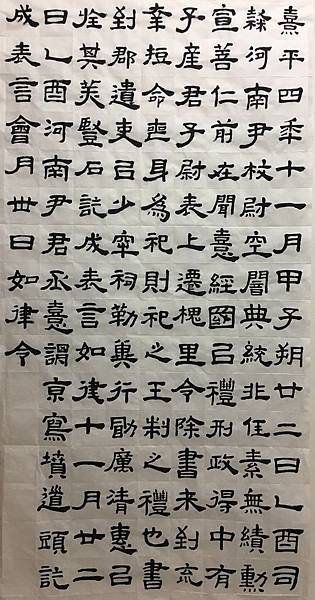 熹平四年十一月甲子朔廿二日乙酉司
隸河南尹校尉空闇典統非任素無績勳
宣善仁前在聞憙經國以禮刑政得中有
子產君子尉表上遷槐里令除書未到不
幸短命喪身為祀則祀之王制之禮也書
到郡遣吏以少牢祠勒異行勖厲清惠以
旌其美豎石訖成表言如律十一月廿二
日乙酉河南尹君丞憙謂京寫墳道頭訖
成表言會月卅日如律令